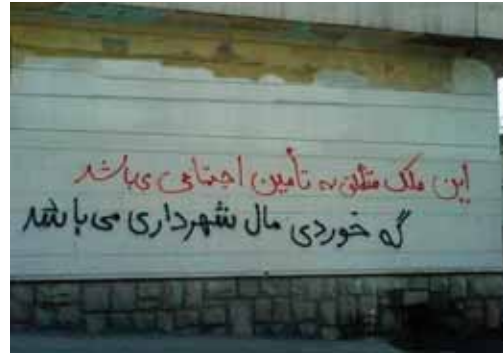 این ملک متعلق به تأمین اجتماعی میباشد
گه خوردی مال شهرداری می باشد